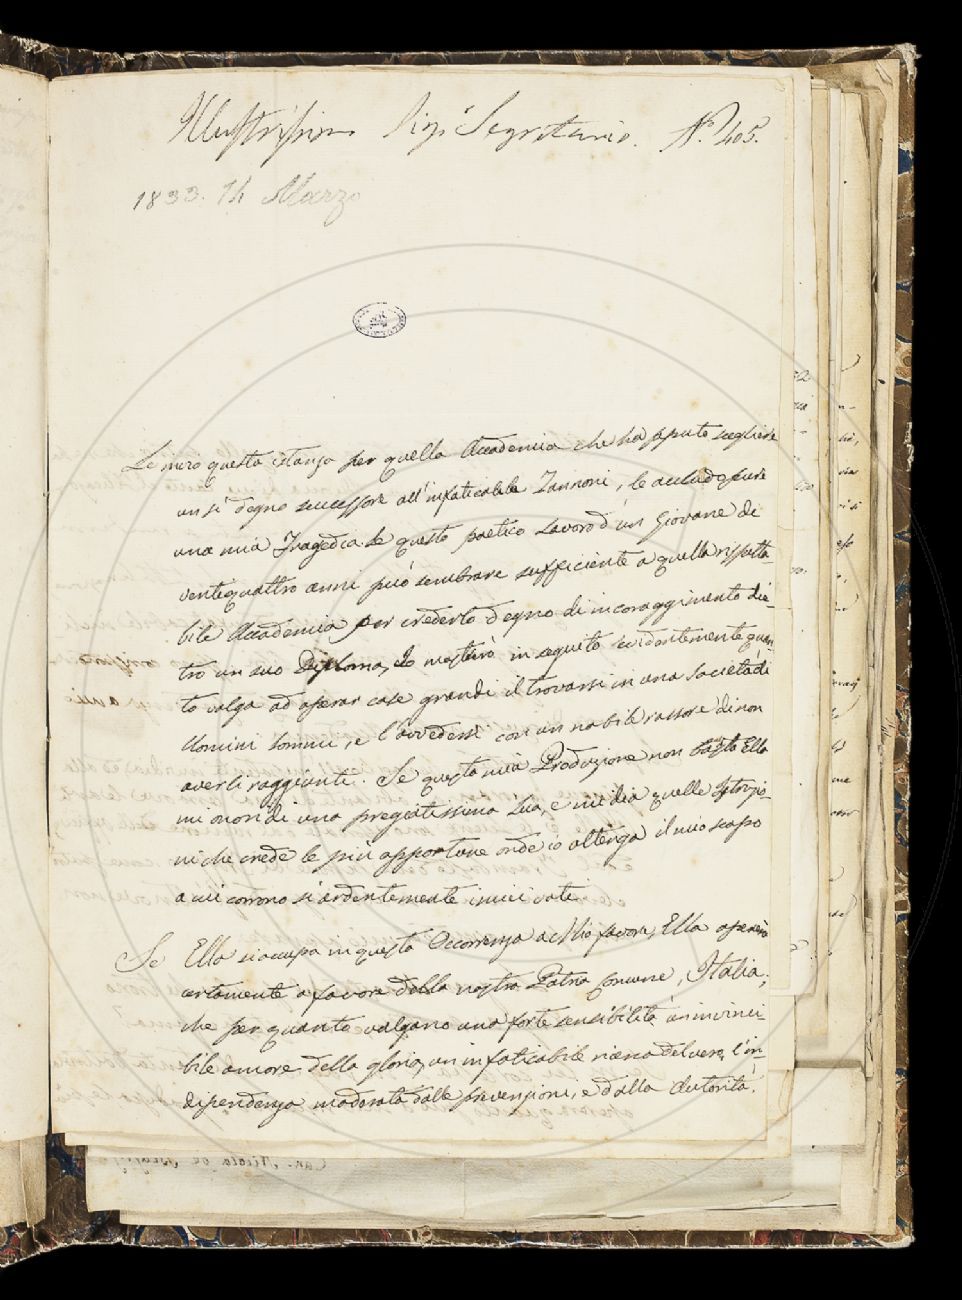 Illustrissimo Sig.r Segretario. N.o 405.
1833. 14 Marzo
Le invio questa istanza per quella Accademia che ha saputo scegliere
un sì degno successore all'infaticabile Zannoni, le accludo pure
una mia Tragedia. Se questo poetico lavoro d'un Giovane di
ventiquattro anni può sembrare sufficiente a quella rispetta-
bile Accademia per crederlo degno di incoraggimento die-
tro un suo Diploma, Io mostrerò in seguito evidentemente quan-
to valga ad operar cose grandi il trovarsi in una Società di
Uomini sommi, e l'avvedersi con un nobile rossore di non
averli raggiunti. Se questa mia Produzione non basta Ella
mi onori di una pregiatissima sua, e mi dia quelle Istruzio-
ni che crede le più opportune onde io ottenga il mio scopo
a cui corrono sì ardentemente i miei voti.
Se Ella si occupa in questa Occorrenza a Mio favore, Ella opererà
certamente a favore della nostra Patria Comune, Italia;
che per quanto valgano una forte sensibilità, un invinci-
bile amore della gloria, un infaticabile del vero, l'in-
dipendenza moderata dalle prevenzioni, e dalla Autorità,